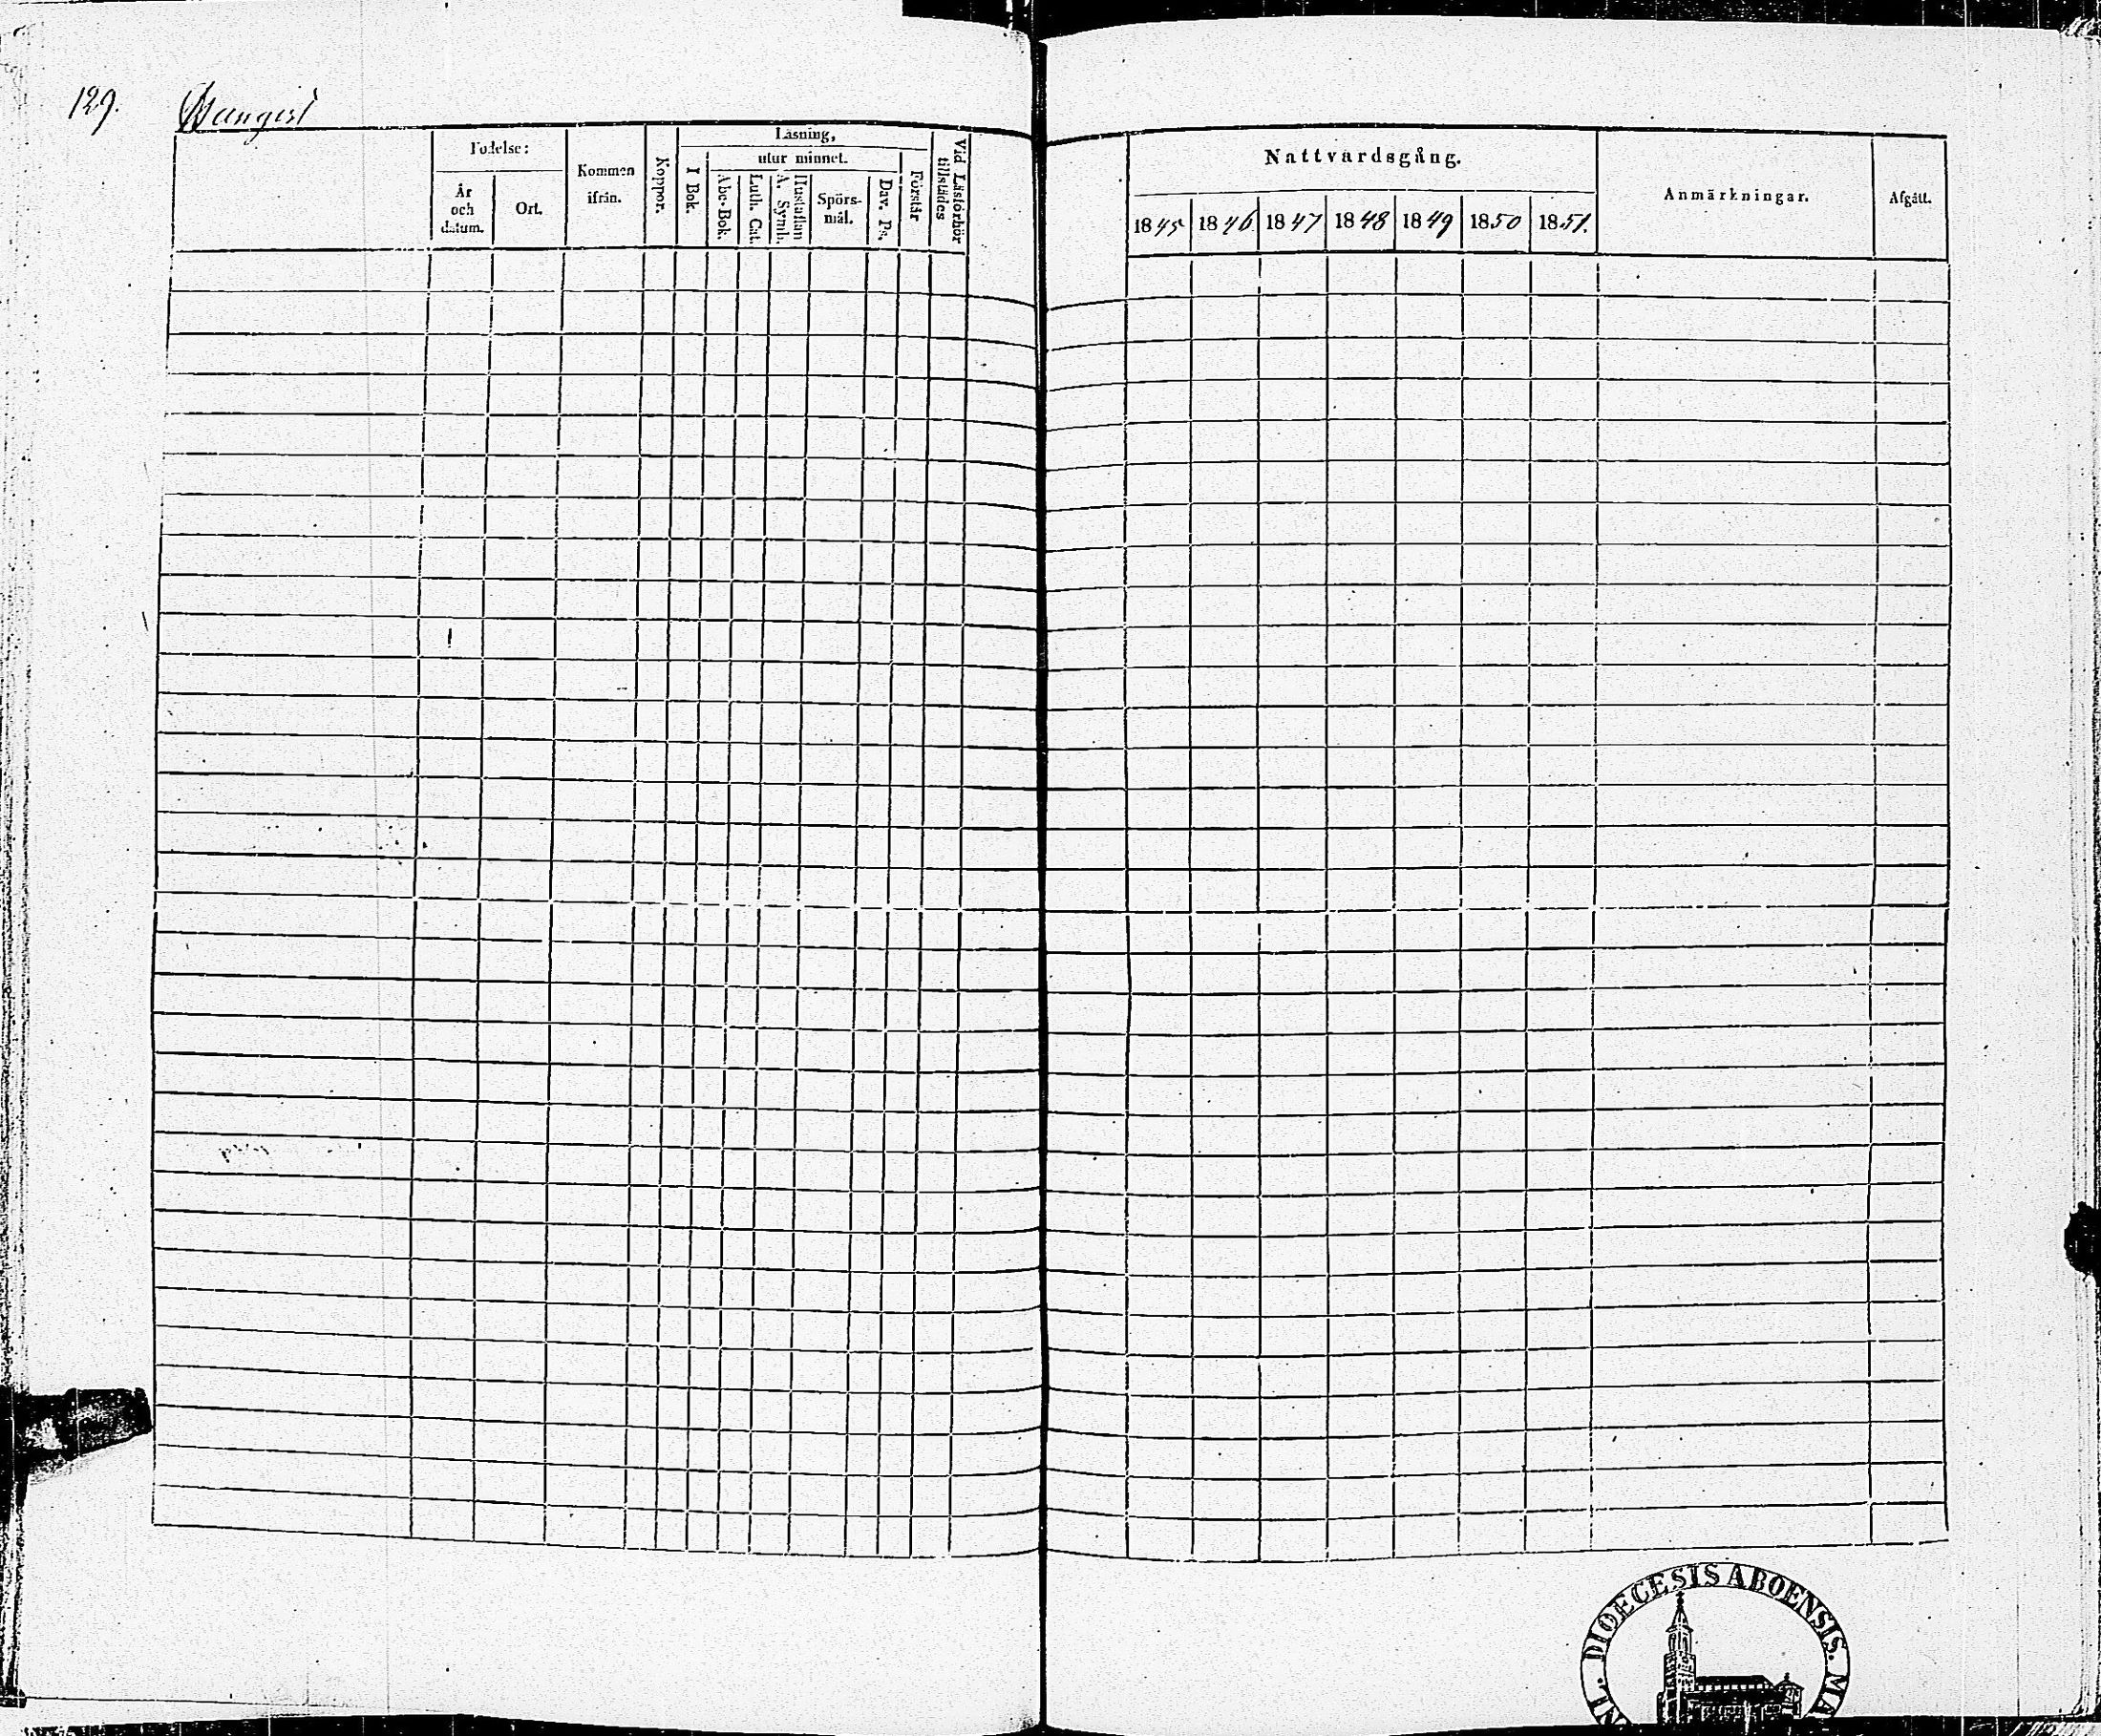 129.
Födelse:
År och datum.
Ort.
Kommen ifrån.
Koppor.
Läsning,
I Bok.
utur minnet.
Abc-Bok.
Luth. Cat.
Hustaflan A. Symb.
Spörs-mål.
Dav. Ps.
Förstår
Vid Läsförhör tillstädes
Nattvardsgång.
1845 1846 1847 1848 1849 1850 1851.
Anmärkningar.
Afgått.
DIOECESIS ABOENSIS. MA